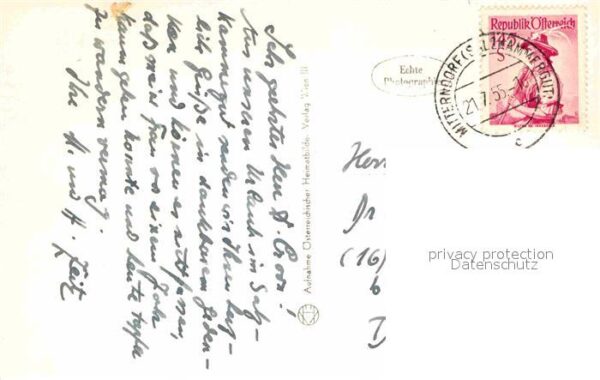 Sehr geehrter Herr Dr.
Aus unserem Urlaub im Salz-
kammergut senden wir Ihnen herz-
liche Grüße in dankbarem Geden-
ken und können es nicht fassen,
daß meine Frau vor einem Jahr
kaum gehen konnte und heute tapfer
zu wandern vermag.
Ihr H. und H.
Aufnahme Österreichischer Heimatbilder Verlag Wien III
Echte
Photographie
Republik Österreich
MITTERNDORF (SALZKAMMERGUT)
21.7.55
c
Herr
Dr
(16)
privacy protection
Datenschutz